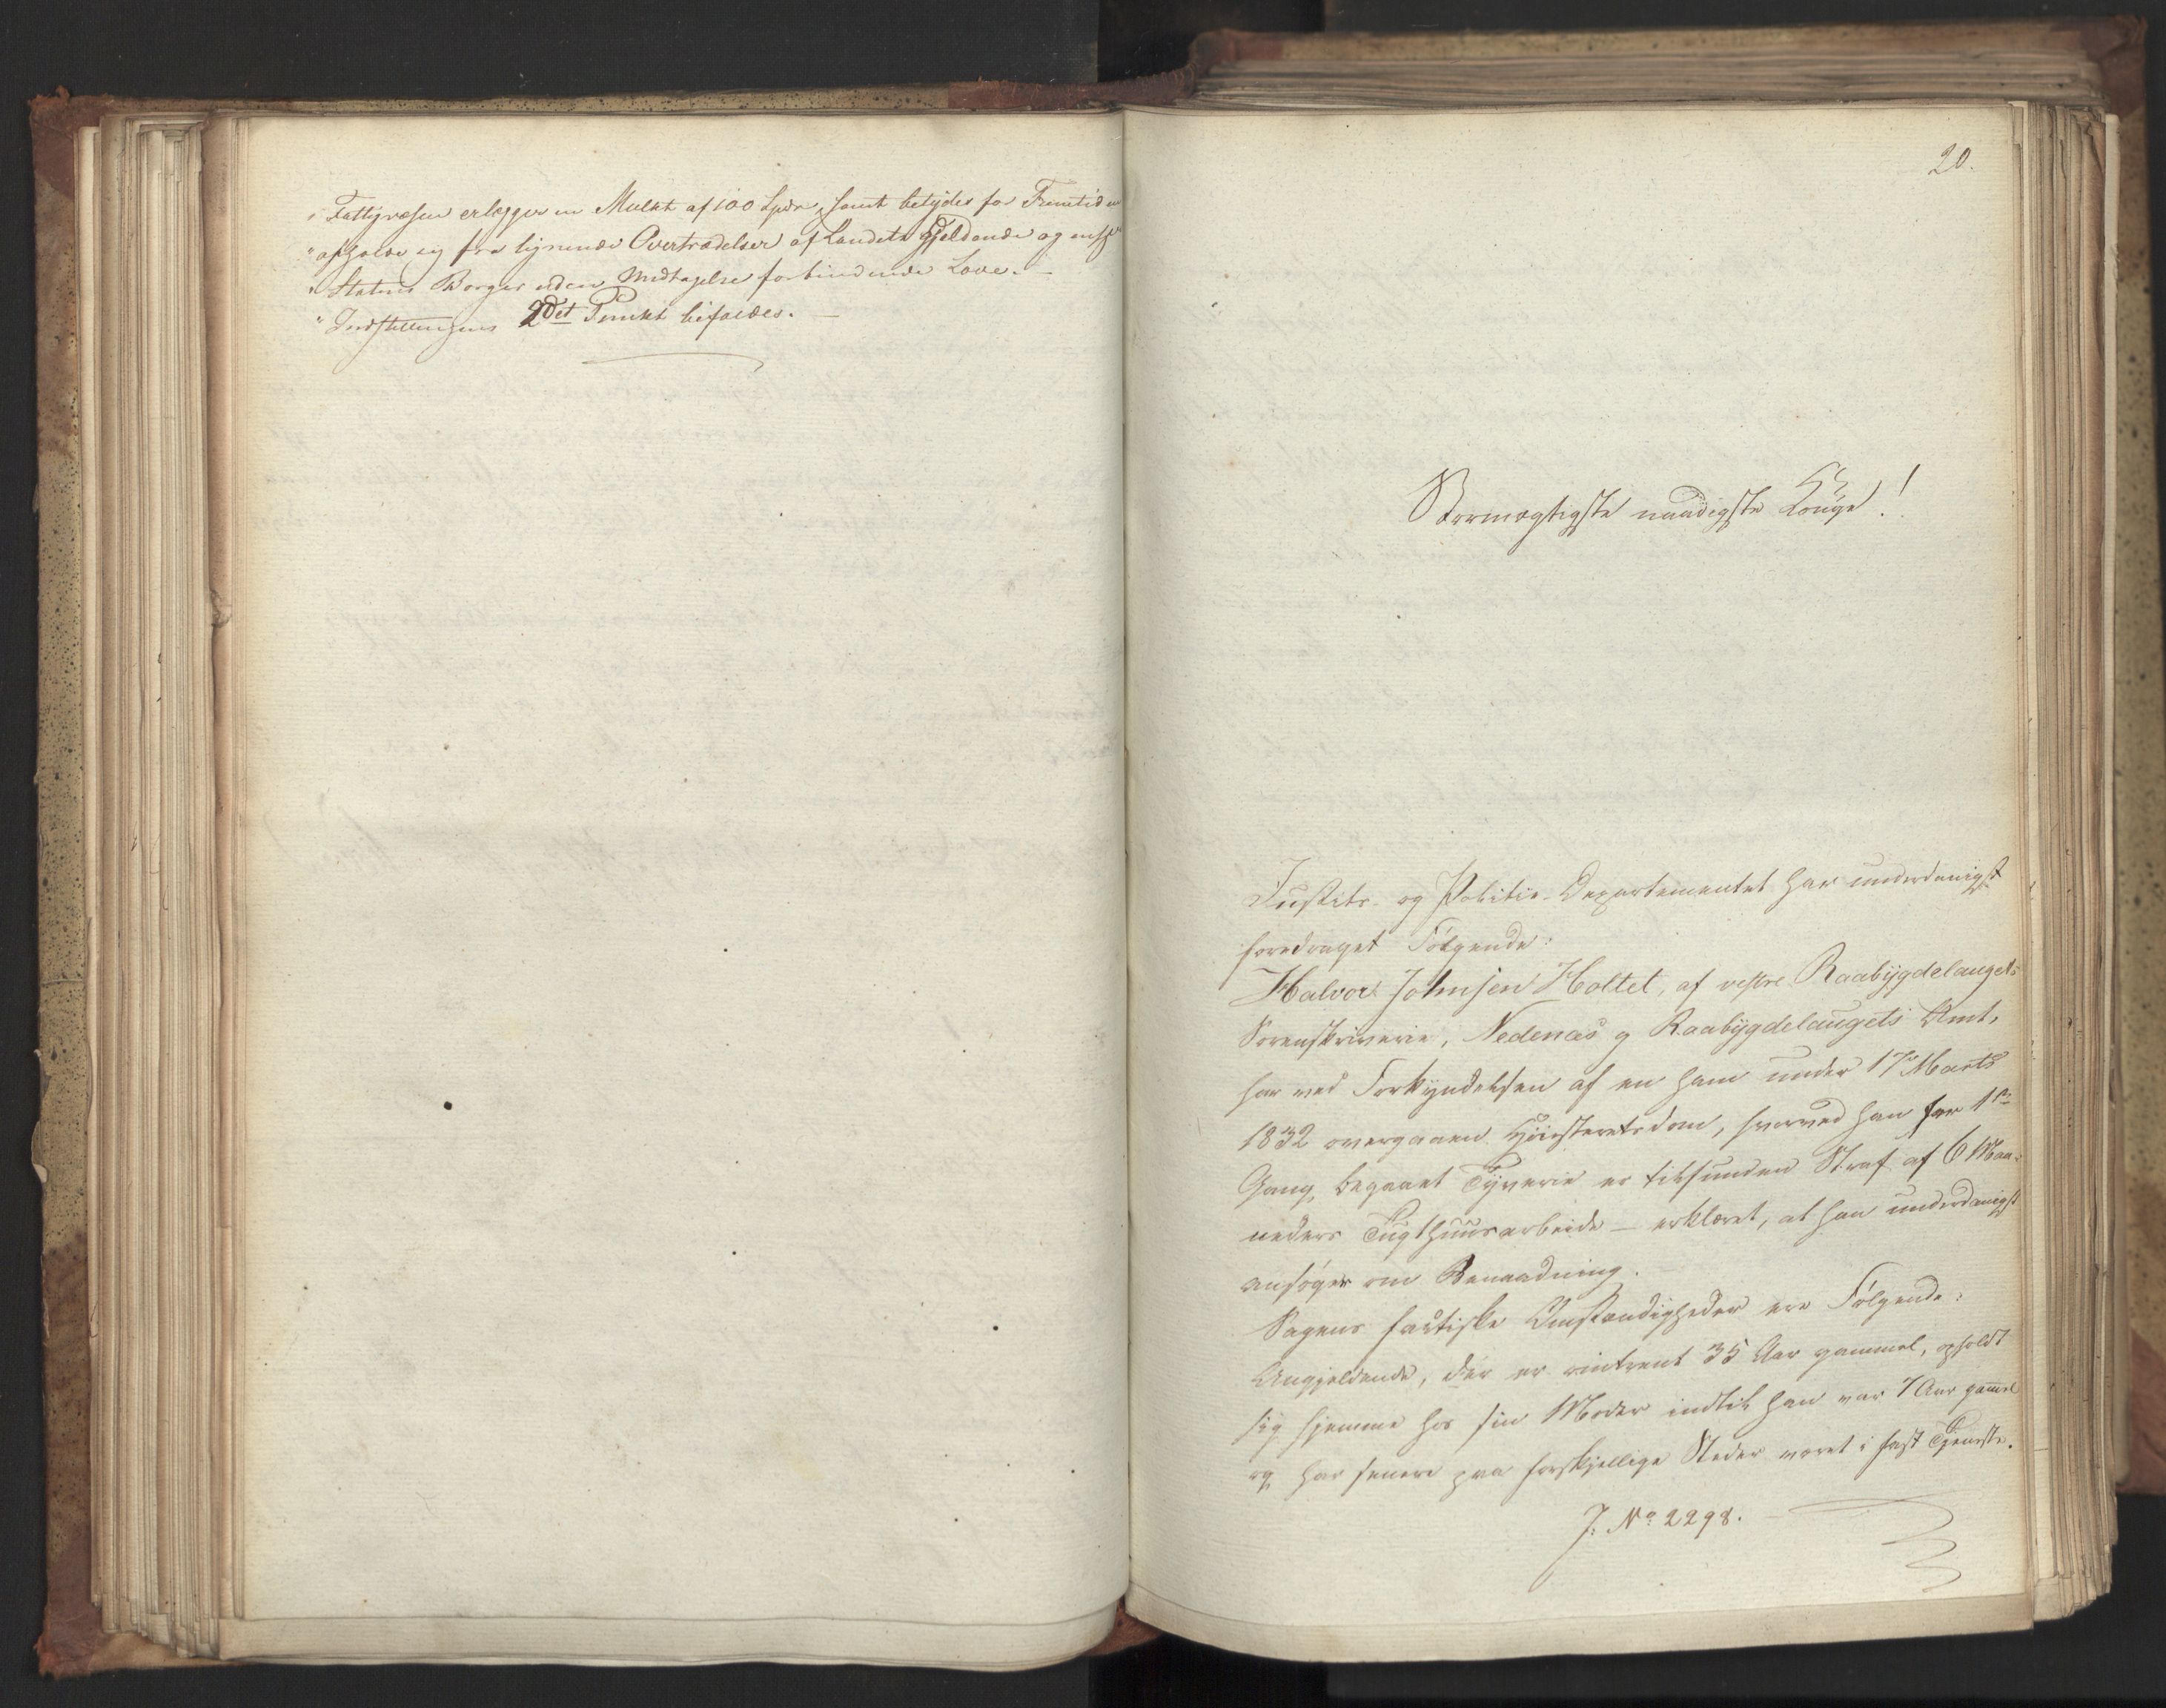 "Fattigvæsen erlægger en Mulkt af 100 Spdr, samt betydes for Fremtiden
"afholde sig fra lignende Overtrædelser af Landets gjeldende og enhver
"Statens Borger uden Undtagelse forbindende Love. —
"Indstillingens 2det Punkt bifaldes. —
20.
Stormægtigste naadigste Konge!
Justits- og Politie-Departementet har underdanigst
foredraget Følgende:
Halvor Johnsen Holtet, af vestre Raabygdelaugets
Sorenskriverie, Nedenæs og Raabygdelaugets Amt,
har ved Forkyndelsen af en ham under 17 Marts
1832 overgaaen Høiesteretsdom, hvorved han for 1ste
Gang begaaet Tyverie er tilfunden Straf af 6 Maa-
neders Tugthuusarbeide — erklæret, at han underdanigst
ansøger om Benaadning.
Sagens factiske Omstændigheder ere Følgende:
Angjeldende, der er omtrent 35 Aar gammel, opholdt
sig hjemme hos sin Moder indtil han var 7 Aar gammel
og har senere paa forskjellige Steder været i fast Tjeneste.
J. No 2298. —